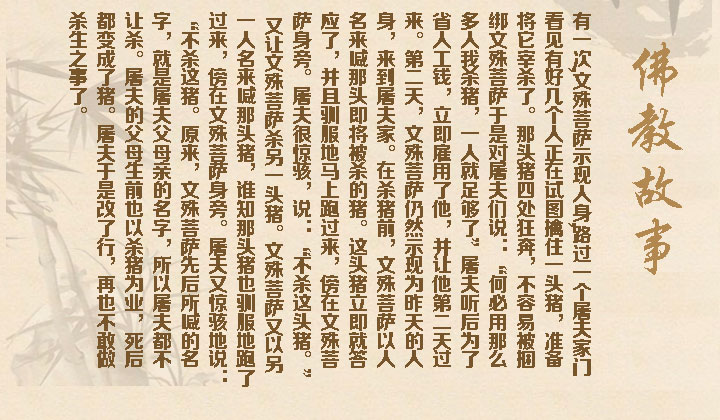 佛教故事
有一次文殊菩萨示现人身，路过一个屠夫家门
看见有好几个人正在试图擒住一头猪，准备
将它宰杀了。那头猪四处狂奔，不容易被捆
绑文殊菩萨于是对屠夫们说：“何必用那么
多人我杀猪，一人就足够了”屠夫听后为了
省人工钱，立即雇用了他，并让他第二天过
来。第二天，文殊菩萨仍然示现为昨天的人
身，来到屠夫家。在杀猪前，文殊菩萨以人
名来喊那头即将被杀的猪。这头猪立即就答
应了，并且驯服地马上跑过来，傍在文殊菩
萨身旁。屠夫很惊骇，说：“不杀这头猪。”
又让文殊菩萨杀另一头猪。文殊菩萨又以另
一人名来喊那头猪，谁知那头猪也驯服地跑了
过来，傍在文殊菩萨身旁。屠夫又惊骇地说：
“不杀这猪。原来，文殊菩萨先后所喊的名
字，就是屠夫父母亲的名字，所以屠夫都不
让杀。屠夫的父母生前也以杀猪为业，死后
都变成了猪。屠夫于是改了行，再也不敢做
杀生之事了。